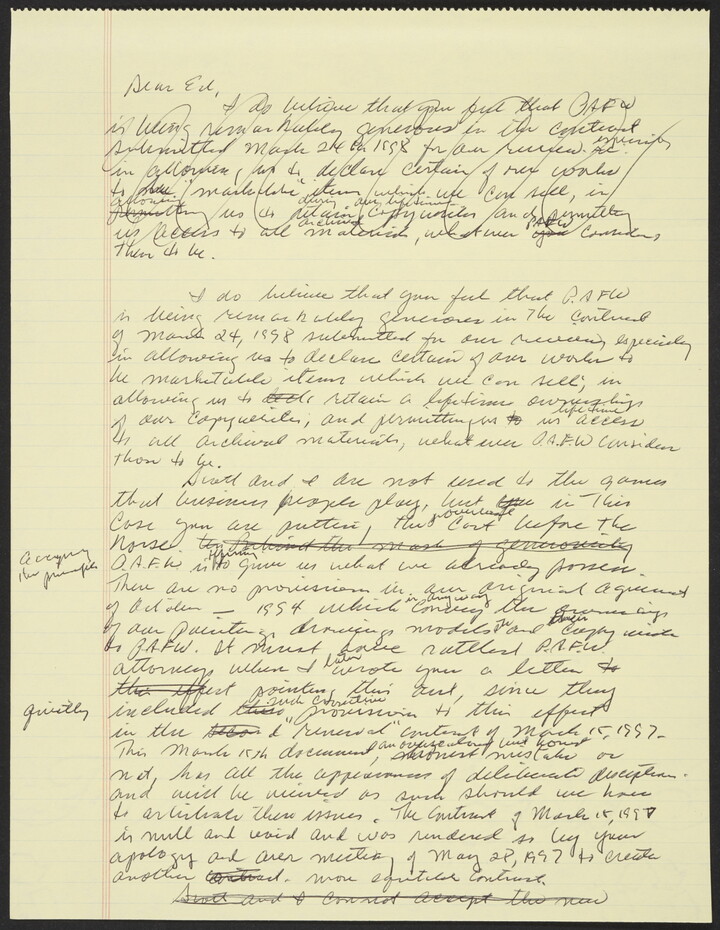 Dear Ed,
I do believe that you feel that PAFW
is being remarkably generous in the contract
submitted March 24th 1998 for our review. especially
in allowing us to declare certain of our works
to "marketable" items which we can sell, in
allowing during our lifetime
permitting us to retain copyrights and permitting
archival PAFW
us access to all materials, whatever you considers
them to be.
I do believe that you feel that P.AFW
is being remarkably generous in The Contract
of March 24, 1998 submitted for our review especially
in allowing us to declare certain of our works to
be marketable items which we can sell; in
allowing us to retain a lifetime ownership
of our copyrights; and permitting us lifetime access
to all archival materials, whatever P.A.F.W considers
those to be.
Scott and I are not used to the games
that business people play, but in This
proverbial
Case you are putting the Cart before the
horse. behind the mask of generosity
P.A.F.W. is to give us what we already possess.
There are no provisions in our original agreement
in any way
of October — 1994 which convey the ownership
of our paintings, drawings models or and copyrights
to PAFW. It must have rattled P.A.F.W.
later
attorneys when I wrote you a letter to
the effect pointing this out, since they
quietly
such conveying
included these provision to this effect
in the "renewal" contract of March 15, 1997.
an honest
This March 15th document, mistake or
not, has all the appearances of deliberate deception.
and will be viewed as such should we have
to arbitrate these issues. The Contract of March 15, 1997
is null and void and was rendered so by your
apology and our meeting of May 28, 1997 to create
another contract. more equitable contract.
Scott and I cannot accept the new